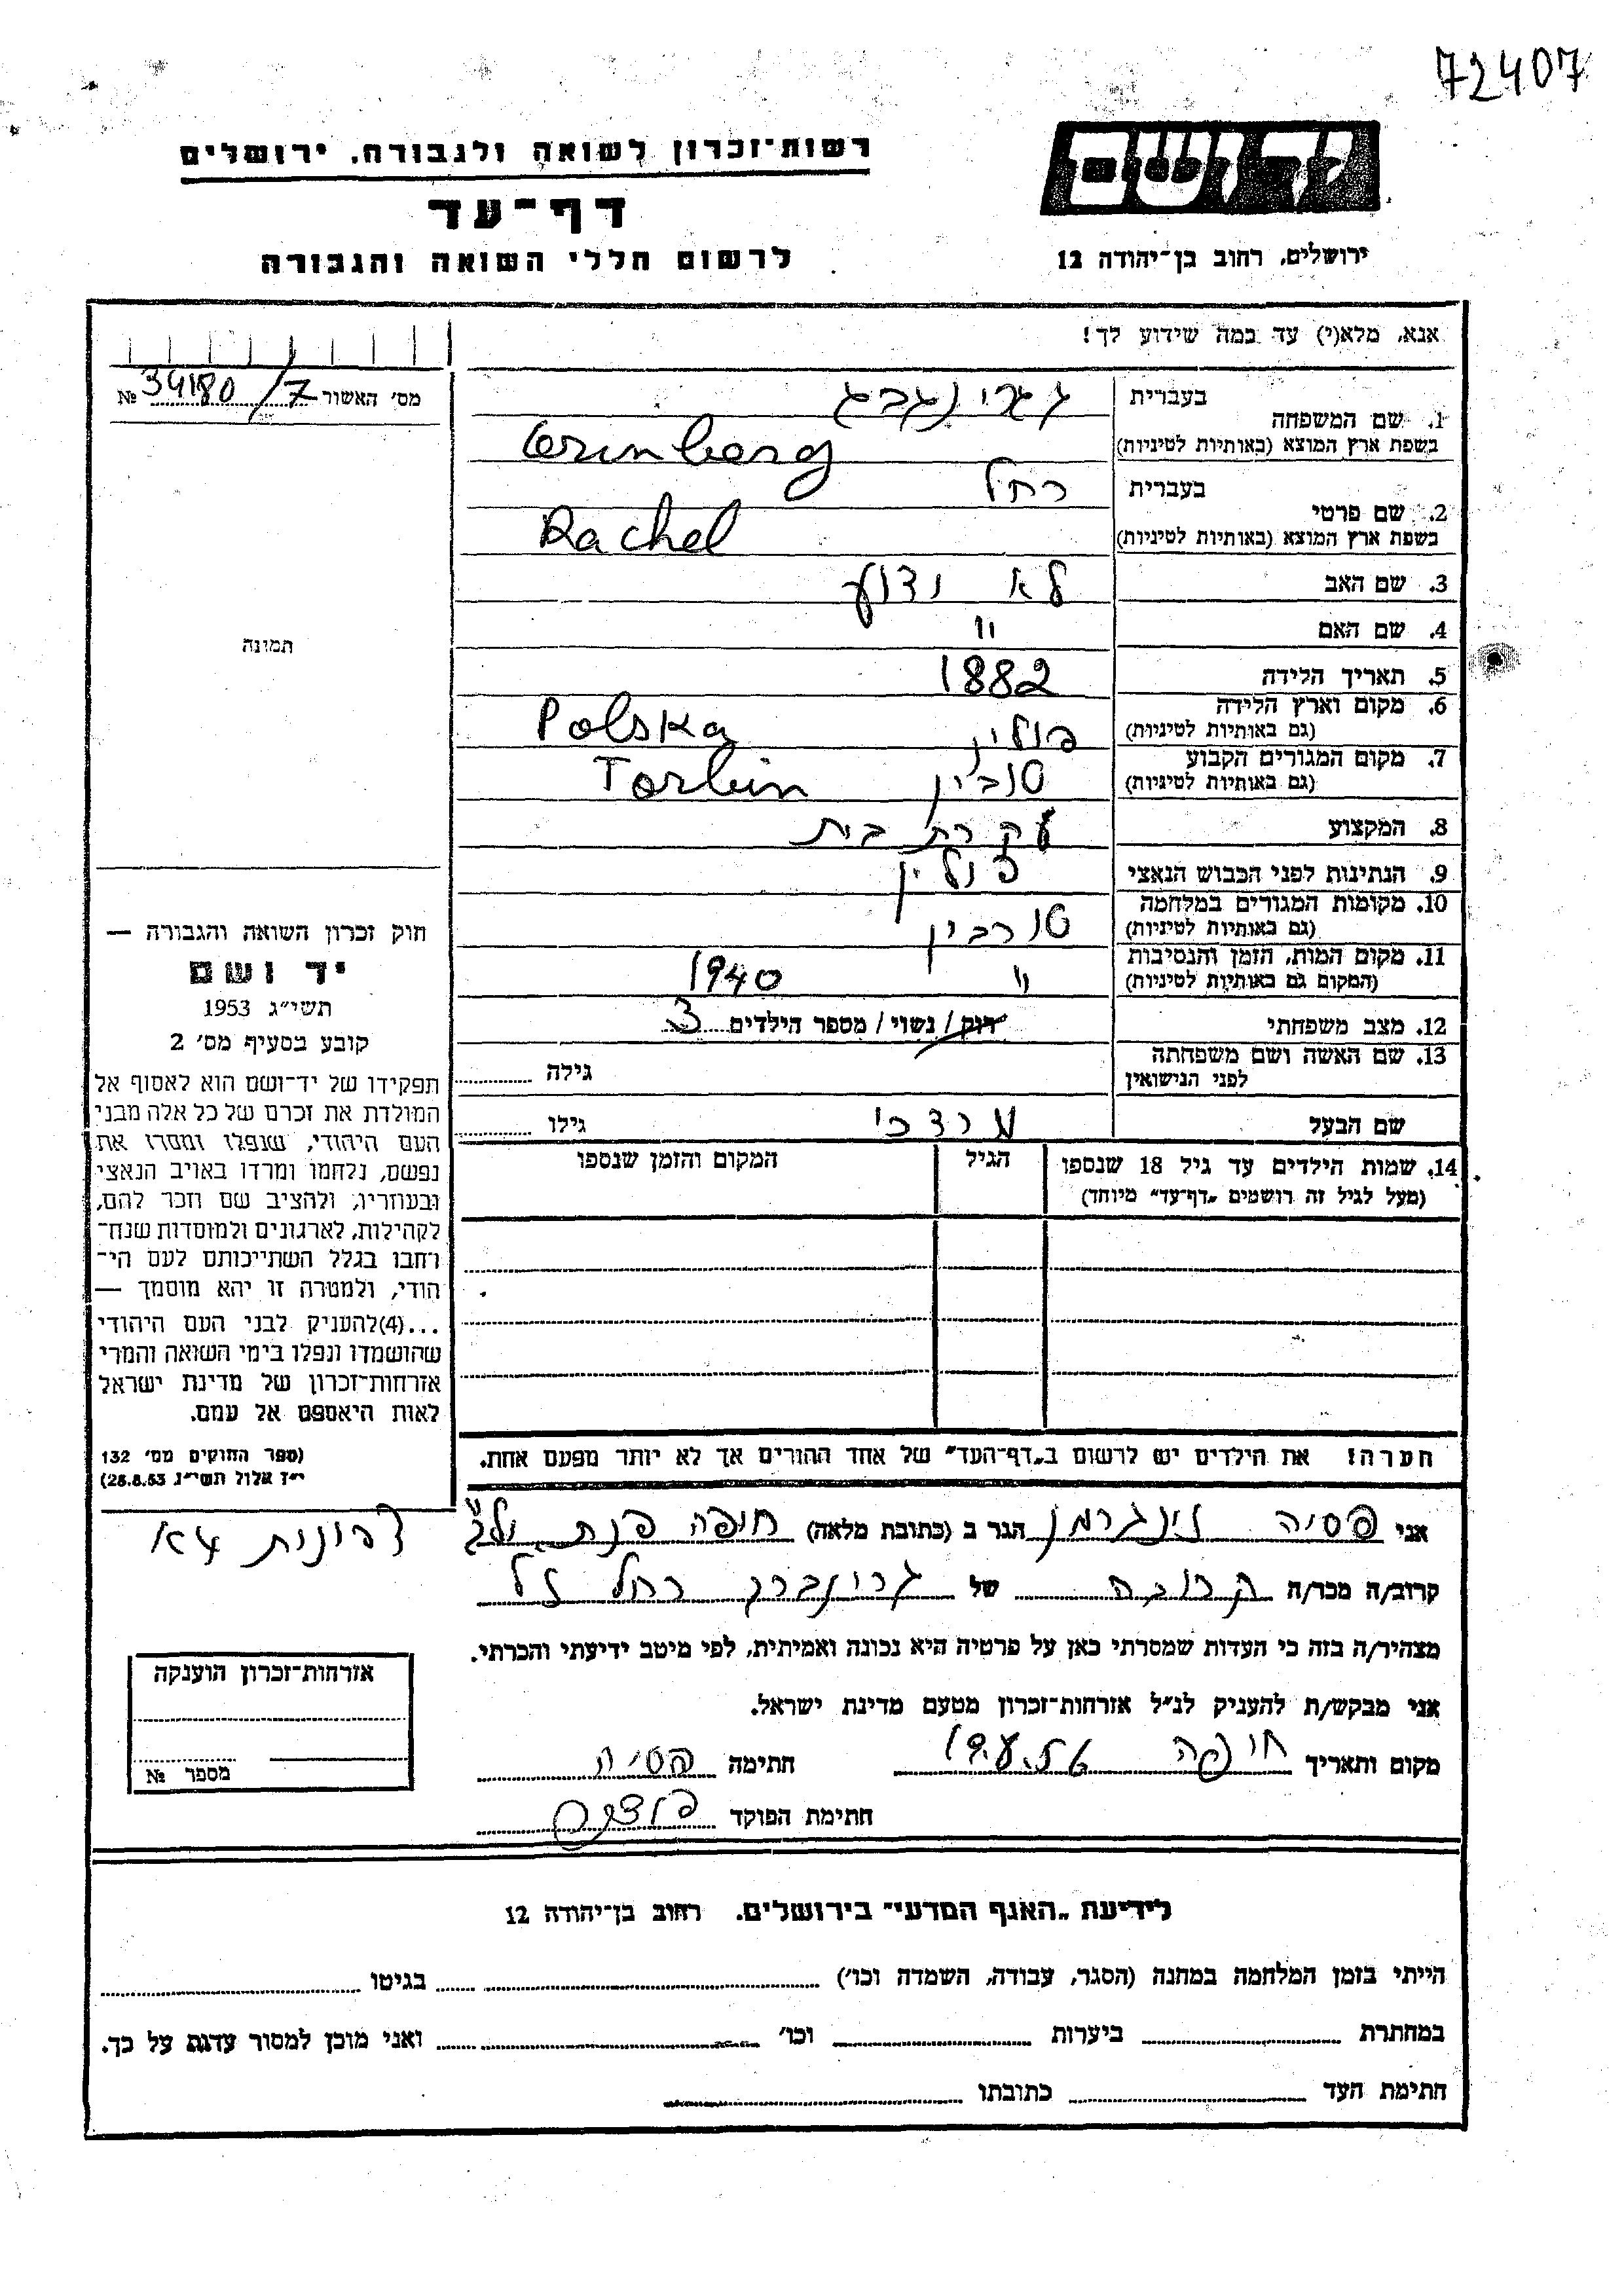 72407
יד ושם
רשות־זכרון לשואה ולגבורה. ירושלים
דף־עד
ירושלים, רחוב בן־יהודה 12
לרשום חללי השואה והגבורה
אנא, מלא(י) עד כמה שידוע לך!
מס׳ האשור 34180/7 №
בעברית
1. שם המשפחה
בשפת ארץ המוצא (באותיות לטיניות) Grinberg
בעברית רחל
2. שם פרטי
בשפת ארץ המוצא (באותיות לטיניות) Rachel
3. שם האב לא ידוע
4. שם האם "
תמונה
5. תאריך הלידה 1882
6. מקום וארץ הלידה פולין Polska
(גם באותיות לטיניות)
7. מקום המגורים הקבוע
(גם באותיות לטיניות)
8. המקצוע עקרת בית
9. הנתינות לפני הכבוש הנאצי פולין
10. מקומות המגורים במלחמה טורבין
(גם באותיות לטיניות)
11. מקום המות, הזמן והנסיבות " 1940
(המקום גם באותיות לטיניות)
12. מצב משפחתי רווק / נשוי / מספר הילדים 3
13. שם האשה ושם משפחתה גילה
לפני הנישואין
שם הבעל מרדכי גילו
14. שמות הילדים עד גיל 18 שנספו הגיל המקום והזמן שנספו
(מעל לגיל זה רושמים „דף־עד" מיוחד)
חוק זכרון השואה והגבורה —
יד ושם
תשי״ג 1953
קובע בסעיף מס׳ 2
תפקידו של יד־ושם הוא לאסוף אל
המולדת את זכרם של כל אלה מבני
העם היהודי, שנפלו ומסרו את
נפשם, נלחמו ומרדו באויב הנאצי
ובעוזריו, ולהציב שם וזכר להם,
לקהילות, לארגונים ולמוסדות שנח־
רחבו בגלל השתייכותם לעם הי־
הודי, ולמטרה זו יהא מוסמך —
...(4)להעניק לבני העם היהודי
שהושמדו ונפלו בימי השואה והמרי
אזרחות־זכרון של מדינת ישראל
לאות היאספם אל עמם.
(ספר החוקים מס׳ 132
י״ד אלול תשי״ג 28.8.53)
הערה! את הילדים יש לרשום ב„דף־העד" של אחד ההורים אך לא יותר מפעם אחת.
אני פסיה לינגרמן הגר ב (כתובת מלאה) חיפה
קרוב/ה מכר/ה קרובה של גרינברג רחל ז״ל
מצהיר/ה בזה כי העדות שמסרתי כאן על פרטיה היא נכונה ואמיתית, לפי מיטב ידיעתי והכרתי.
אני מבקש/ת להעניק לנ״ל אזרחות־זכרון מטעם מדינת ישראל.
מקום ותאריך חיפה חתימה פסיה
חתימת הפוקד
אזרחות־זכרון הוענקה
מספר №
לידיעת „האגף המדעי" בירושלים. רחוב בן־יהודה 12
הייתי בזמן המלחמה במחנה (הסגר, עבודה, השמדה וכו׳) בגיטו
במחתרת ביערות וכו׳ ואני מוכן למסור עדות על כך.
חתימת העד כתובתו